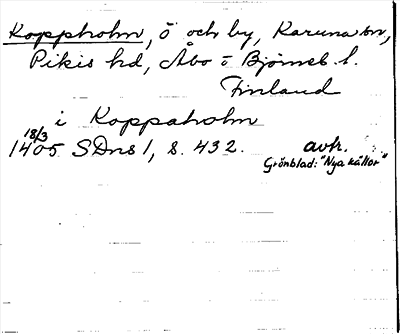 Koppholm, ö och by, Karuna sn,
Pikis hd, Åbo o Björneb. l.
Finland
i Koppaholm
18/3
1405 SDns 1, s. 432. avtr.
Grönblad: "Nya källor"